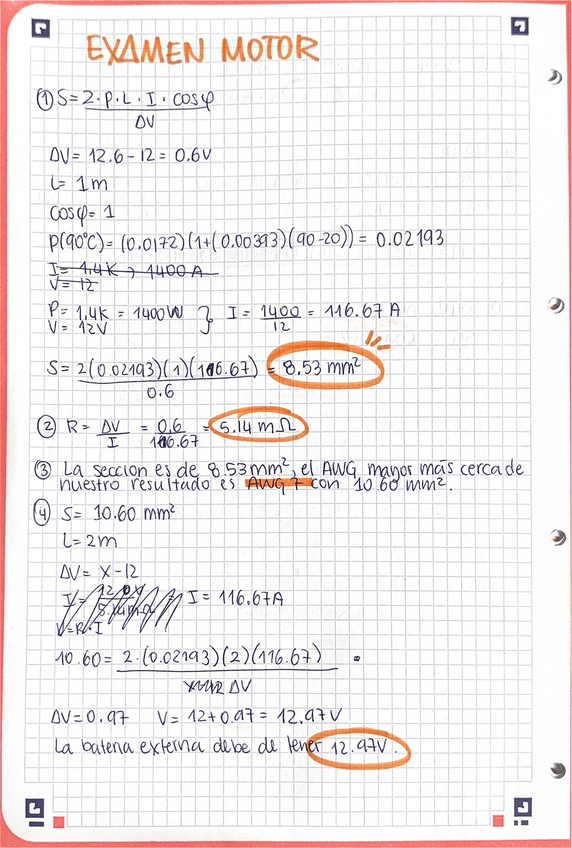 EXAMEN MOTOR
① S = 2·ρ·L·I·cosφ
ΔV
ΔV = 12.6 - 12 = 0.6V
L = 1m
cosφ = 1
ρ(90°C) = (0.0172)(1+(0.00393)(90-20)) = 0.02193
I = 1.4K → 1400 A
V = 12
P = 1.4K = 1400W } I = 1400 = 116.67 A
V = 12V 12
S = 2(0.02193)(1)(116.67) = 8.53 mm²
0.6
② R = ΔV = 0.6 = 5.14 mΩ
I 116.67
③ La seccion es de 8.53mm², el AWG mayor más cerca de
nuestro resultado es AWG 7 con 10.60 mm².
④ S = 10.60 mm²
L = 2m
ΔV = X - 12
I = 116.67A
V=R·I
10.60 = 2·(0.02193)(2)(116.67)
ΔV
ΔV = 0.97 V = 12+0.97 = 12.97V
La bateria externa debe de tener 12.97V.